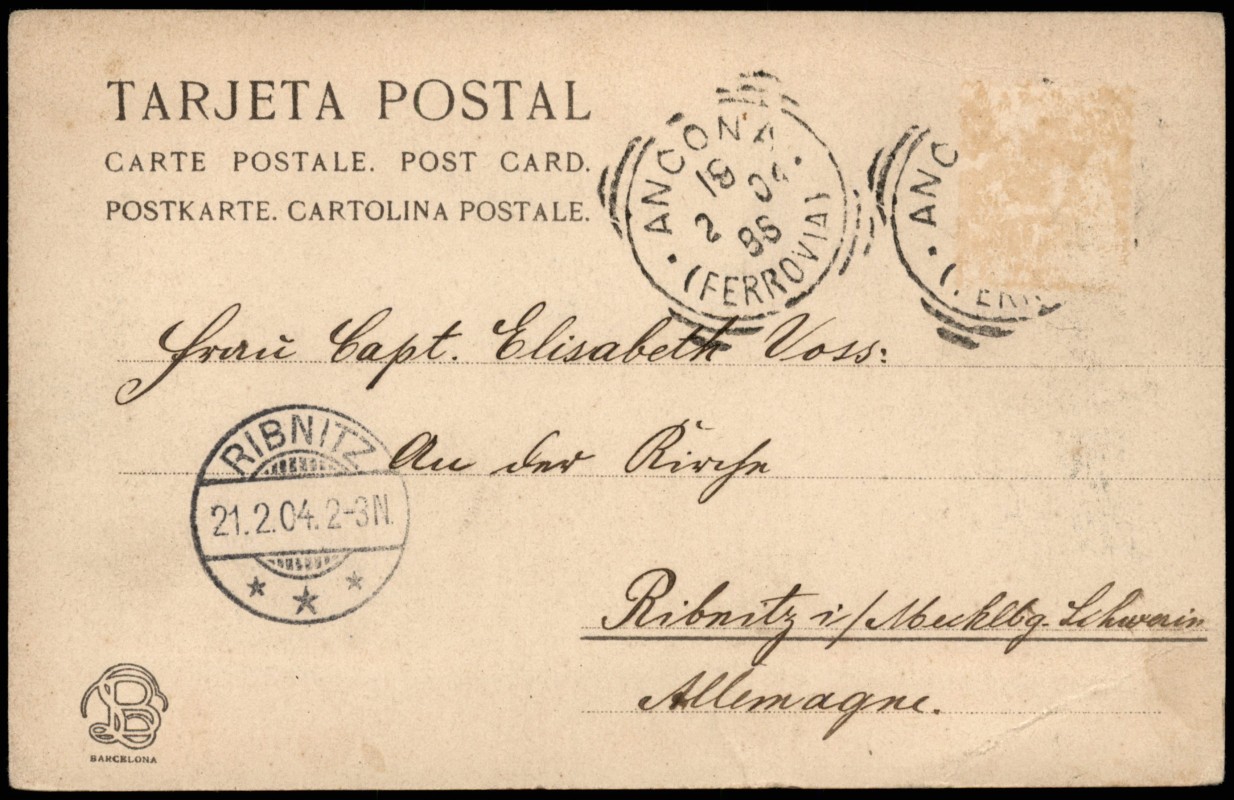 TARJETA POSTAL
CARTE POSTALE. POST CARD.
POSTKARTE. CARTOLINA POSTALE.
ANCONA
(FERROVIA)
ANC
Frau Capt. Elisabeth Voss:
An der Kirche
RIBNITZ
21.2.04.2-3N.
Ribnitz i/Mecklbg. Schwerin
Allemagne.
BARCELONA